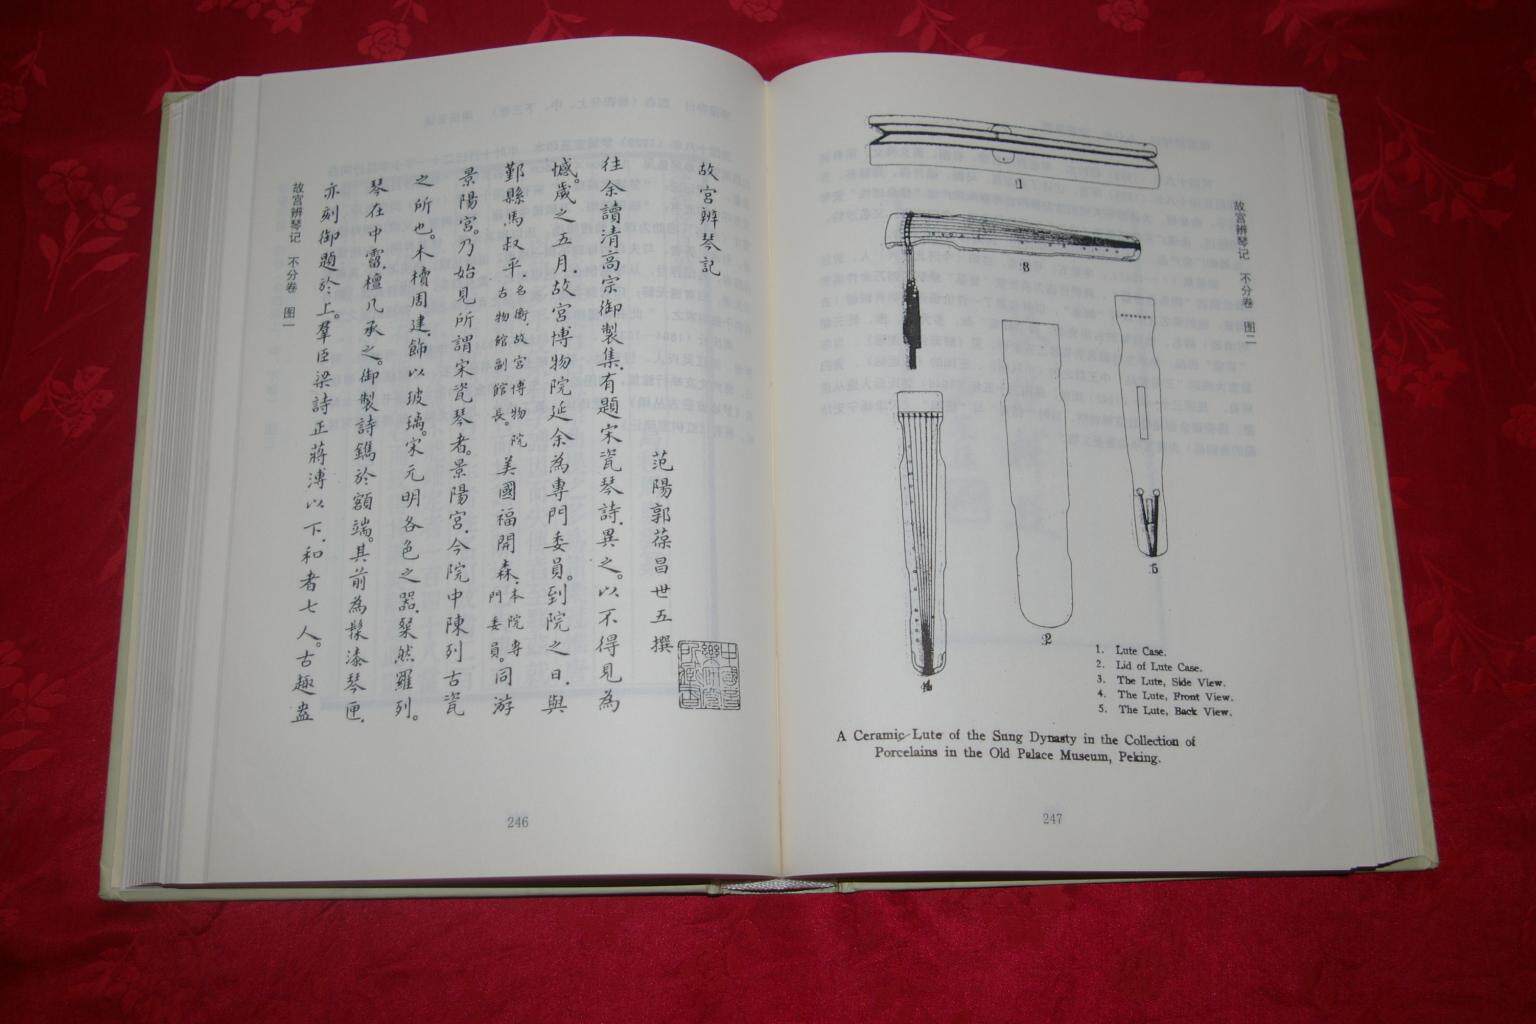 故宮辨琴記
范陽郭葆昌世五撰
往余讀清高宗御製集.有題宋瓷琴詩.異之。以不得見為
憾。歲之五月.故宮博物院延余為專門委員。到院之日.與
鄞縣馬叔平.名衡.故宮博物院古物館副館長。美國福開森.本院專門委員。同游
景陽宮。乃始見所謂宋瓷琴者。景陽宮.今院中陳列古瓷
之所也。木櫝周建.飾以玻璃。宋元明各色之器.粲然羅列。
琴在中霤.檀几承之。御製詩鐫於額端。其前為髹漆琴匣.
亦刻御題於上。羣臣梁詩正蔣溥以下.和者七人。古趣盎
故宫辨琴记 不分卷 图一
246
故宫辨琴记 不分卷 图二
1
3
5
2
4
1. Lute Case.
2. Lid of Lute Case.
3. The Lute, Side View.
4. The Lute, Front View.
5. The Lute, Back View.
A Ceramic Lute of the Sung Dynasty in the Collection of
Porcelains in the Old Palace Museum, Peking.
247